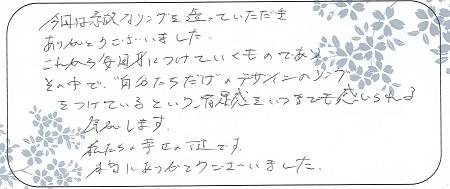 今回は素敵なリングを造っていただき
ありがとうございました。
これから毎日身につけていくものであり
その中で、"自分たちだけ"のデザインのリング
をつけているという、満足感をいつまでも感じられる
気がします。
私たちの幸せの証です。
本当にありがとうございました。